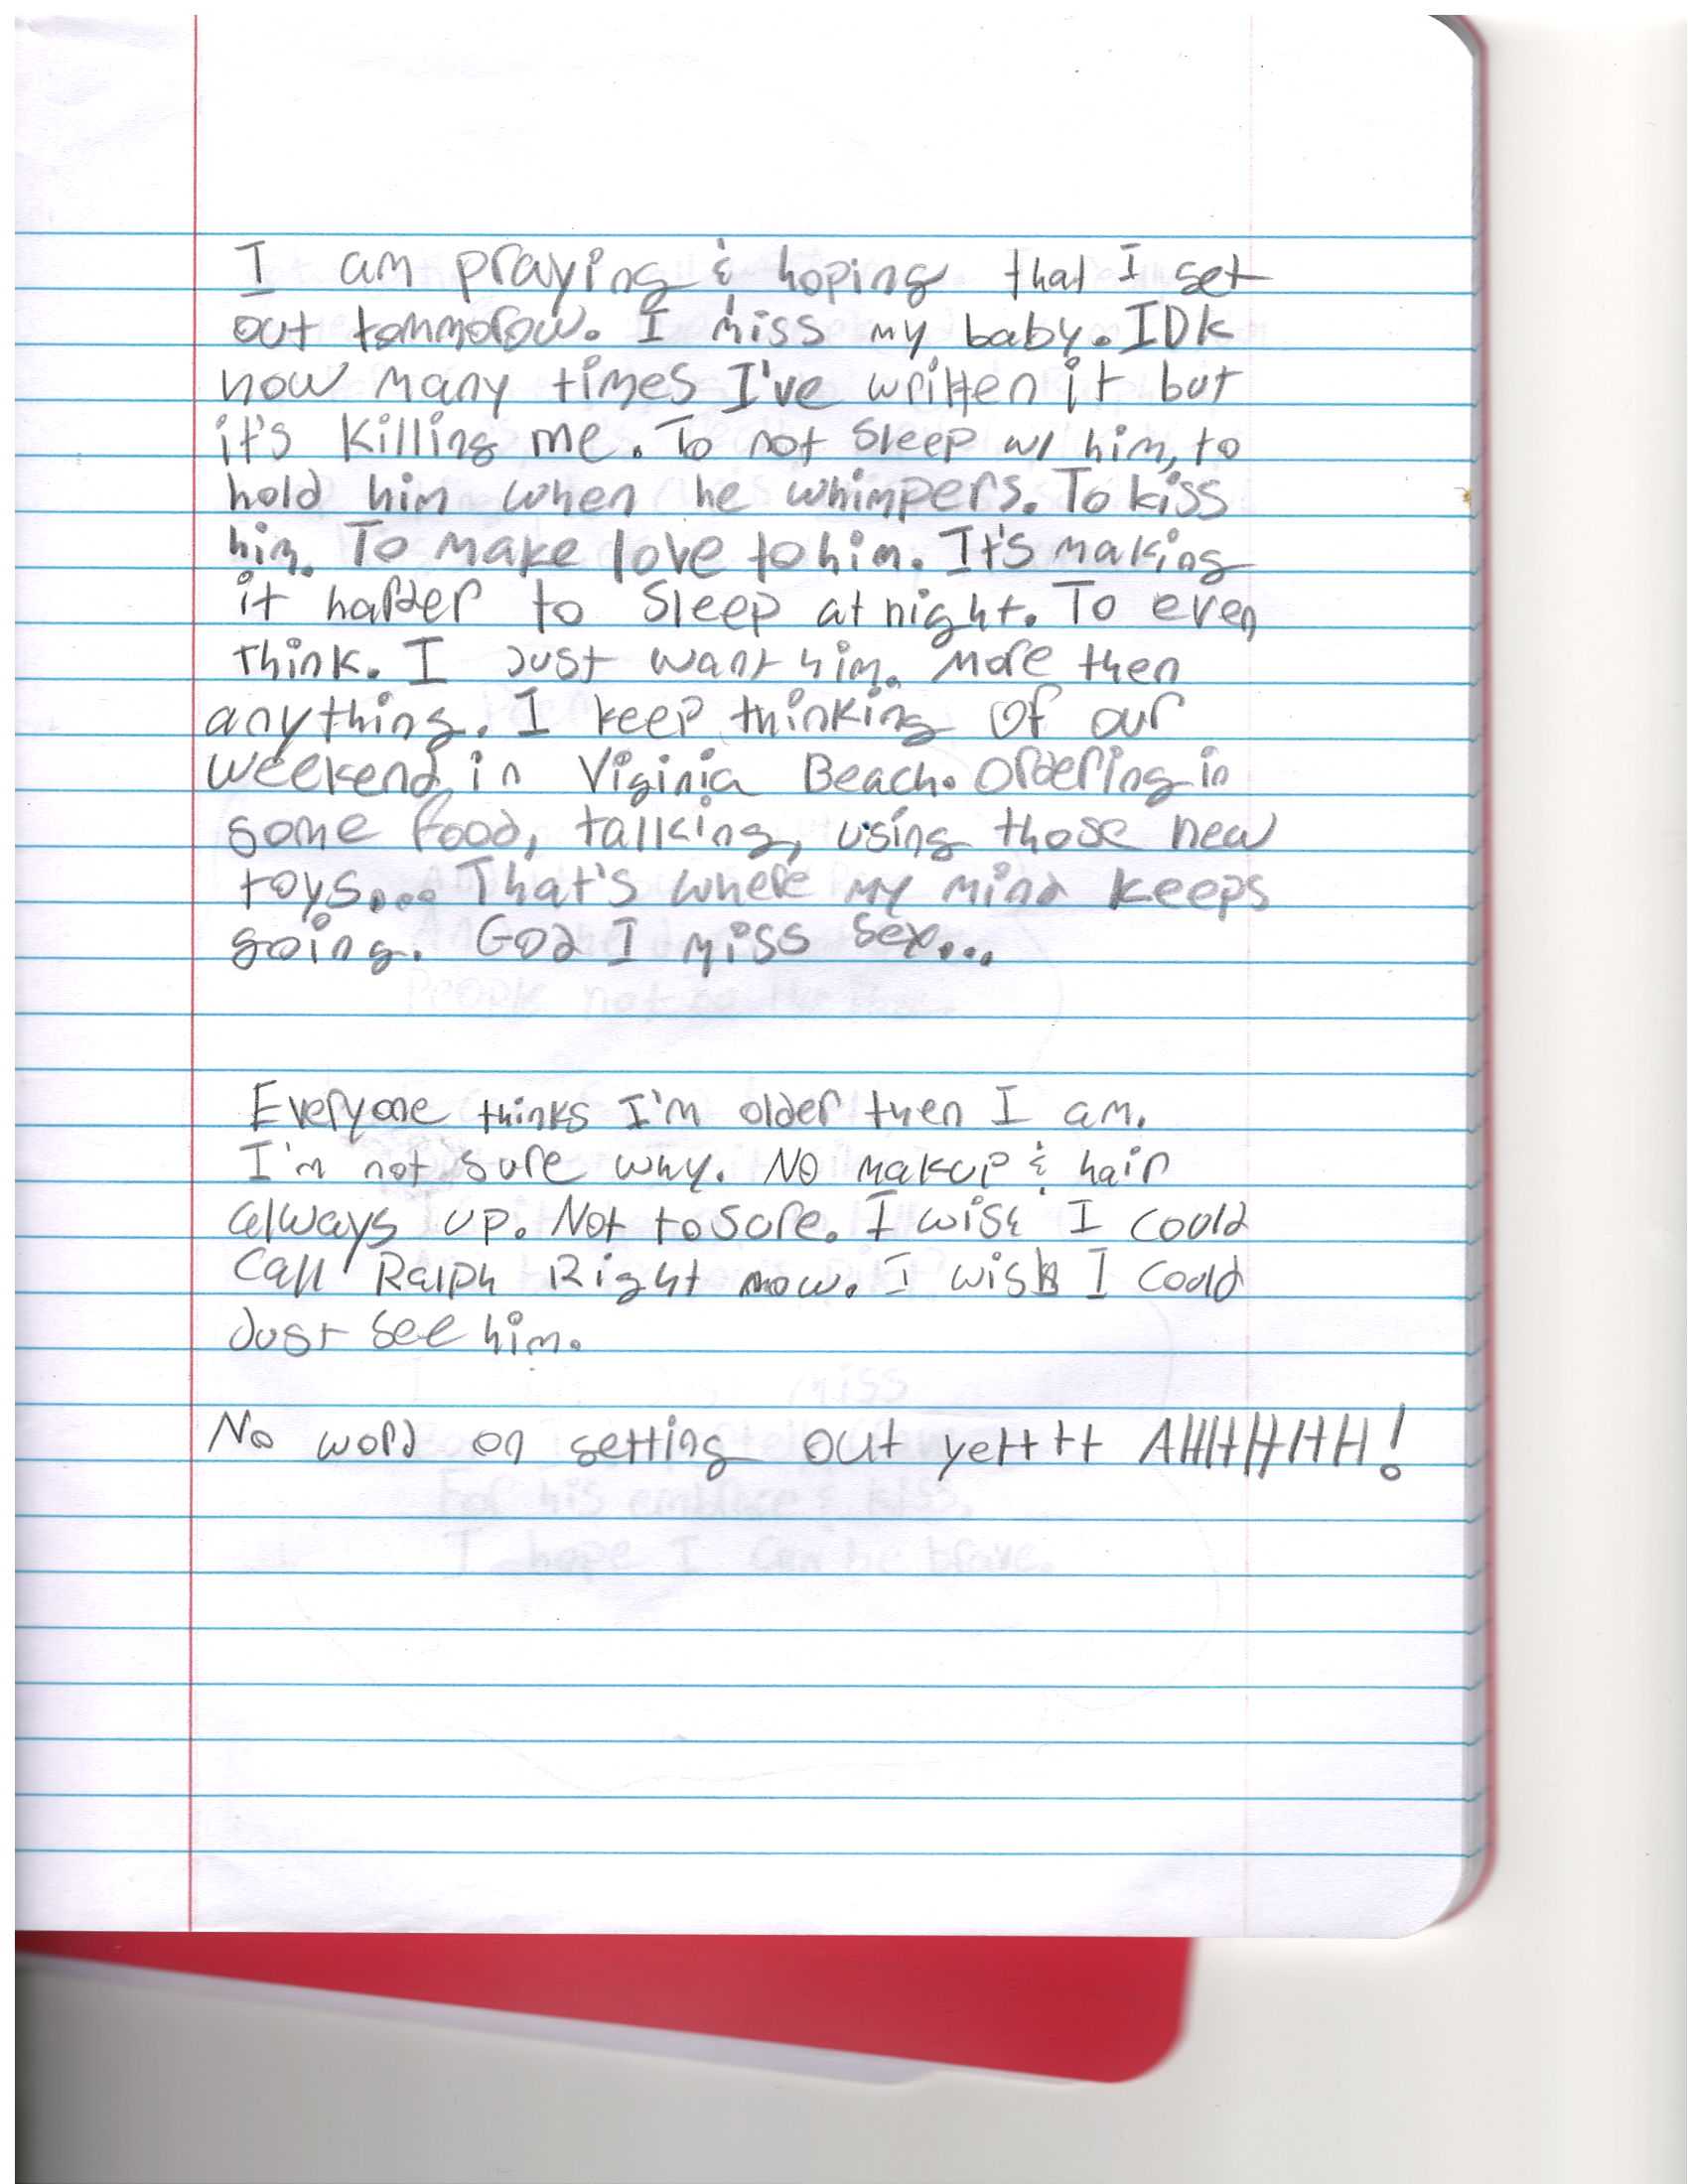 I am praying & hoping that I get
out tommorow. I miss my baby. IDK
how many times I've written it but
it's killing me. To not sleep w/ him, to
hold him when he whimpers. To kiss
him. To make love to him. It's making
it harder to sleep at night. To even
think. I just want him. More then
anything. I keep thinking of our
weekend in Viginia Beach. Ordering in
some food, talking, using those new
toys... That's where my mind keeps
going. God I miss sex...
Everyone thinks I'm older then I am.
I'm not sure why. No makup & hair
always up. Not to sure. I wish I could
call Ralph Right now. I wish I could
Just see him.
No word on getting out yetttt AHHHHHH!
People not
Miss
For his embrace & kiss.
I hope I can be brave.